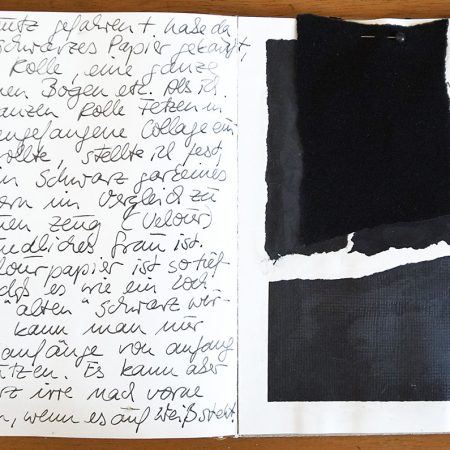 gefahren + habe da
schwarzes Papier gekauft,
Rolle, eine ganze
Bogen etc. Als ich
ganzen Rolle Fetzen in
angefangene Collage ein
wollte, stellte ich fest,
Schwarz gar keines
im Vergleich zu
Zeug (Velour)
ist.
lourpapier ist so tief
daß es wie ein Loch
"alten" Schwarz wir-
kann man nur
anfänge von anfang
Es kann aber
irre nach vorne
wenn es auf Weiß steht.